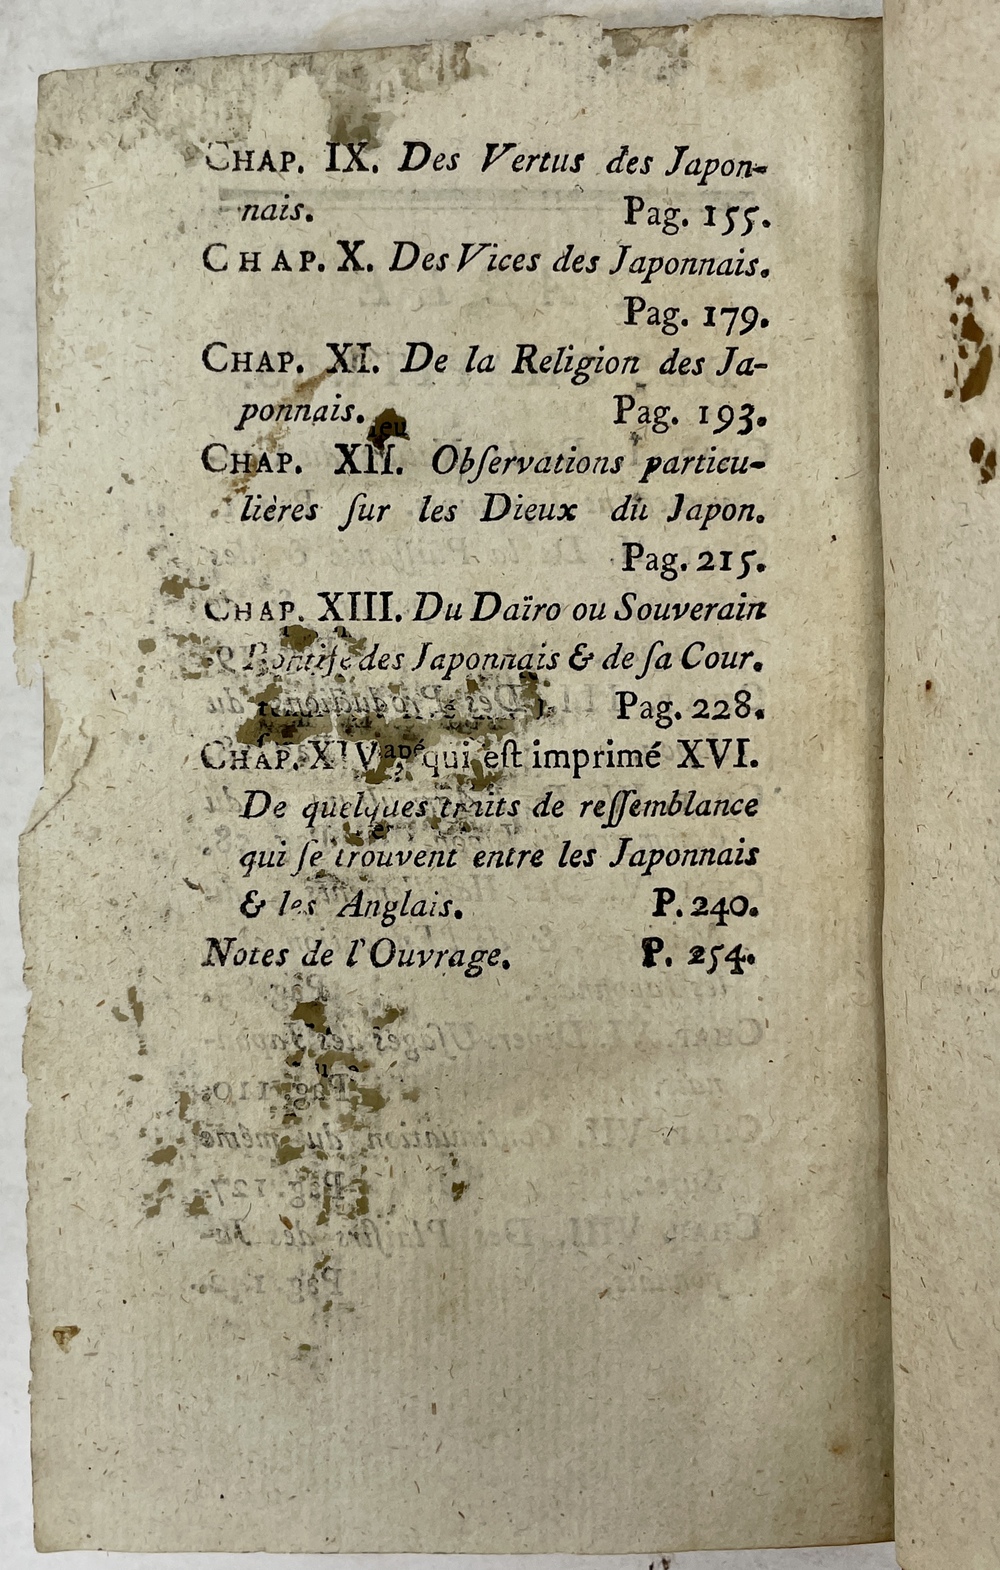 CHAP. IX. Des Vertus des Japon-
nais. Pag. 155.
CHAP. X. Des Vices des Japonnais.
Pag. 179.
CHAP. XI. De la Religion des Ja-
ponnais. Pag. 193.
CHAP. XII. Obſervations particu-
lières ſur les Dieux du Japon.
Pag. 215.
CHAP. XIII. Du Daïro ou Souverain
Pontife des Japonnais & de ſa Cour.
Pag. 228.
CHAP. XIV qui eſt imprimé XVI.
De quelques traits de reſſemblance
qui ſe trouvent entre les Japonnais
& les Anglais. P. 240.
Notes de l'Ouvrage. P. 254.